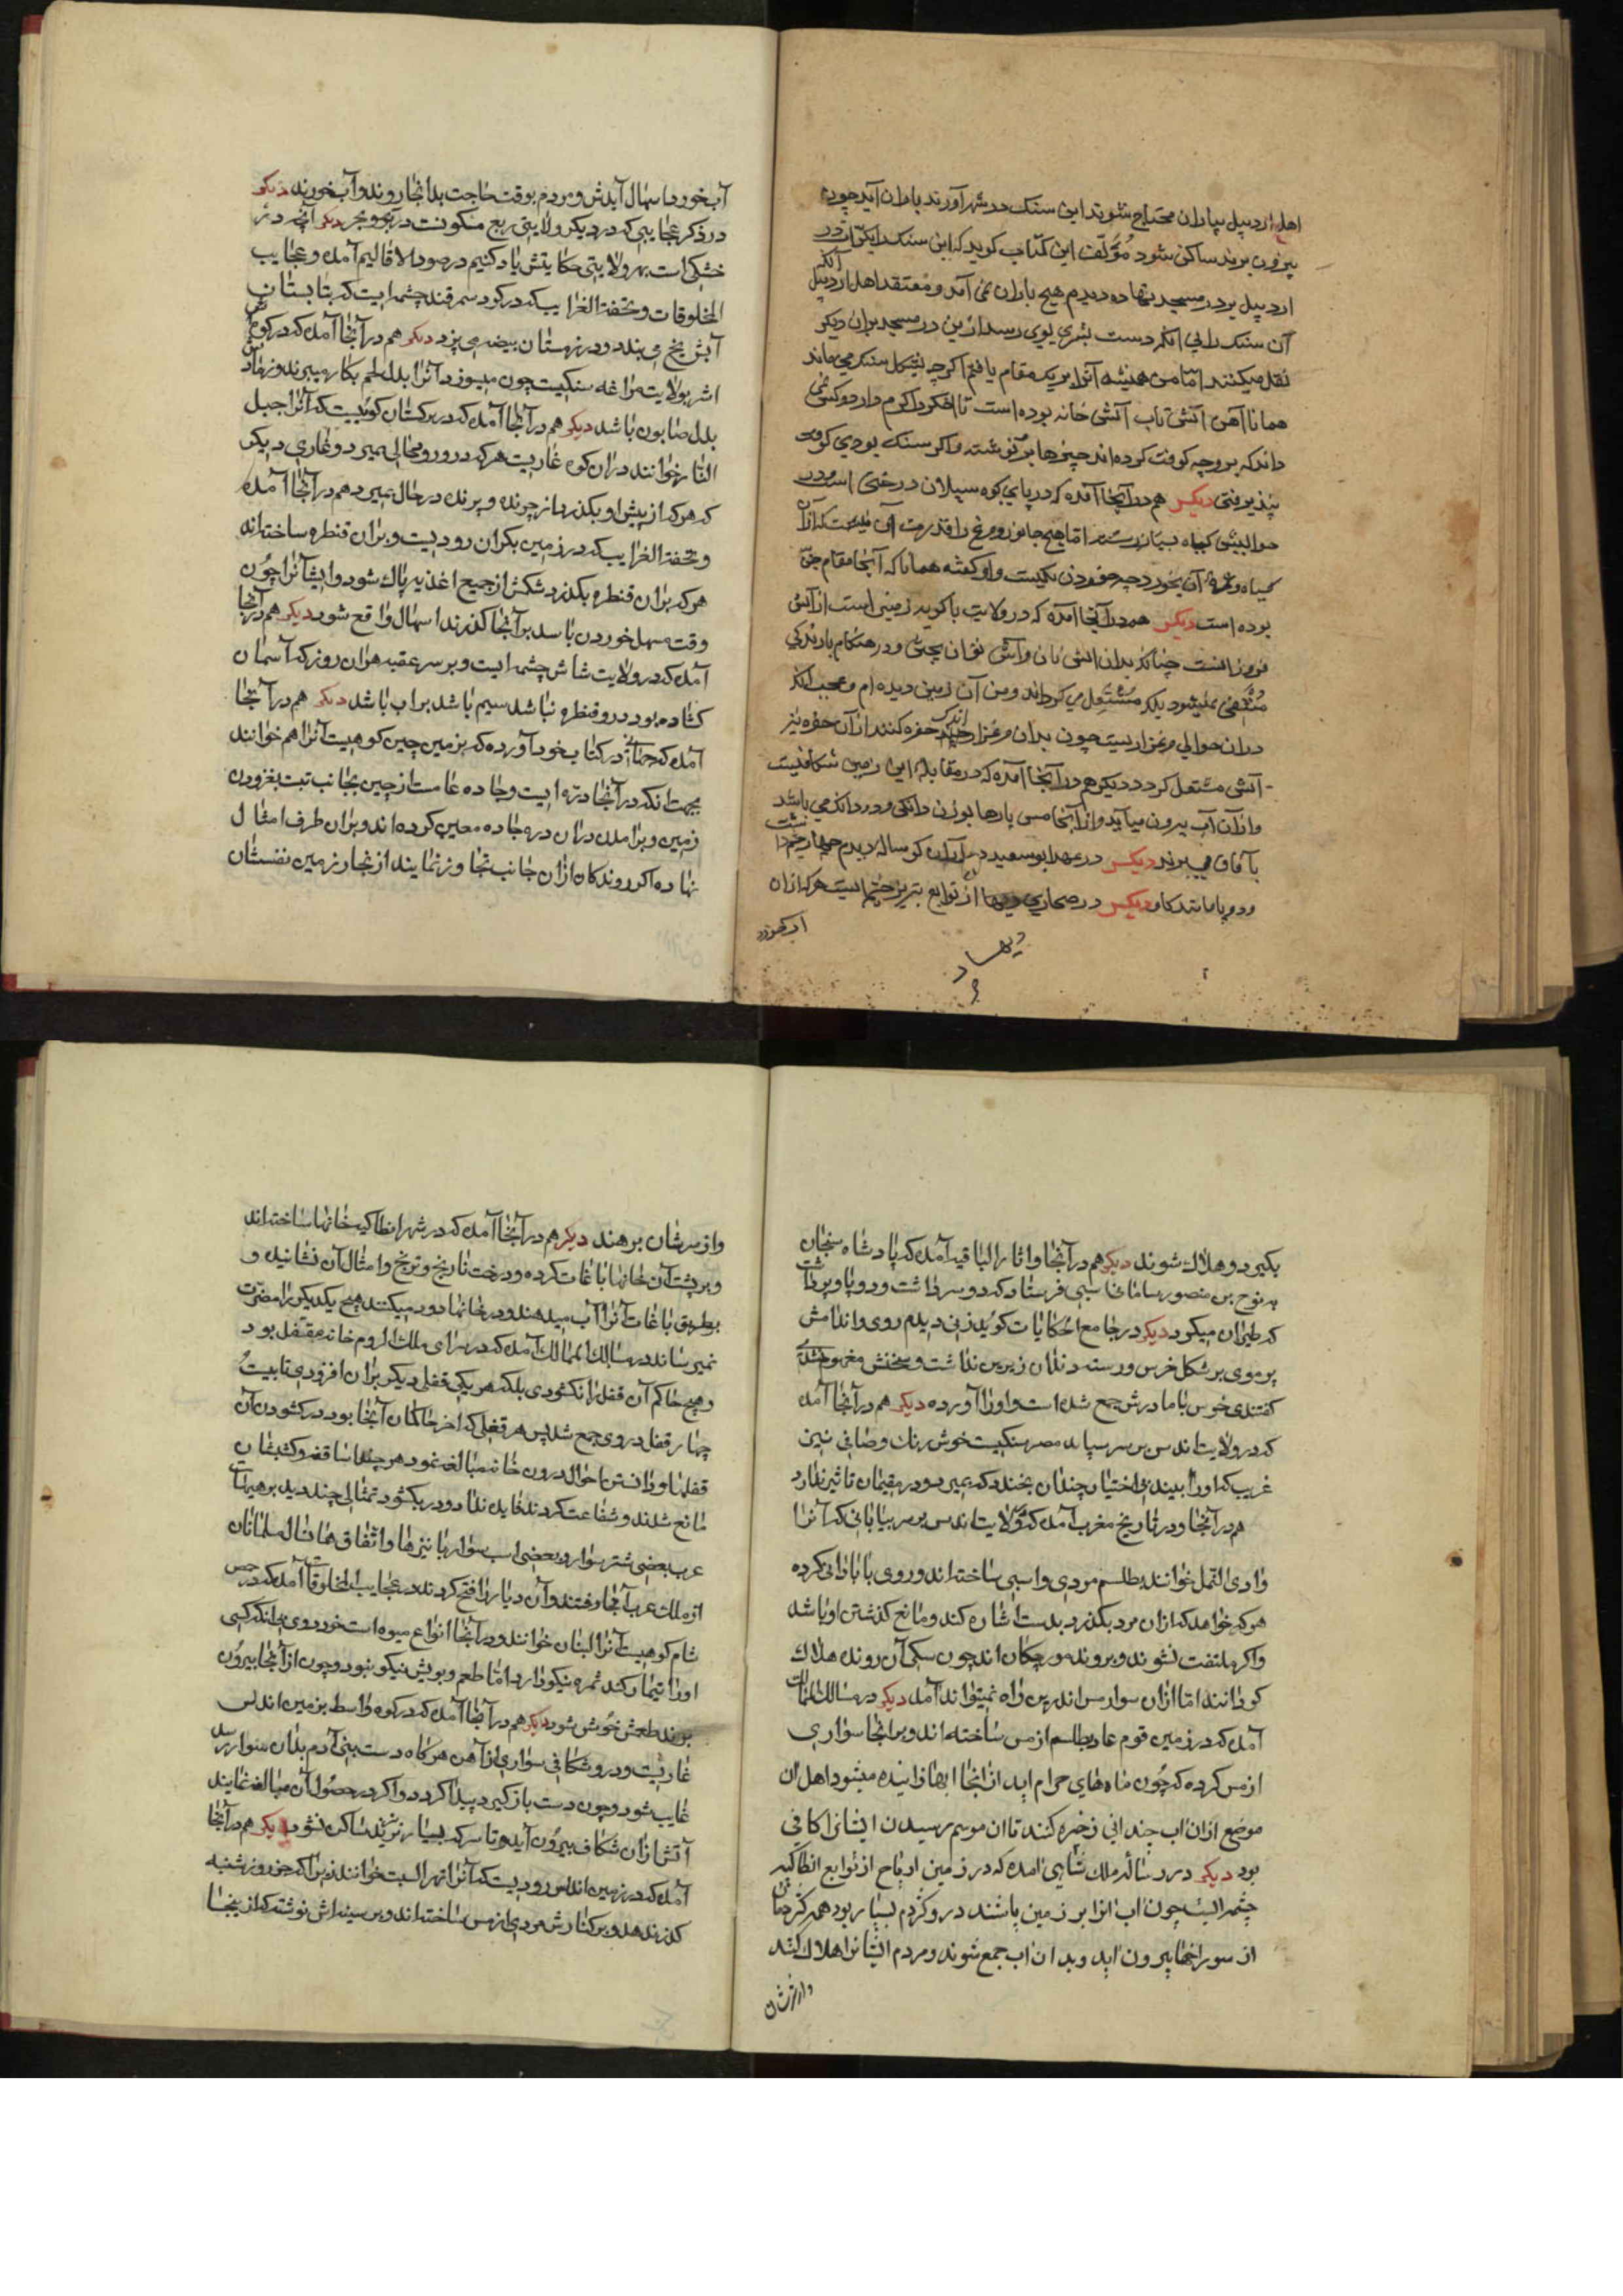 اهل اردبیل بباران محتاج شوند این سنک در شهر آورند باران آید چون
بیرون برند ساکن شود مؤلف این کتاب کوید که این سنک را یکبار در
اردبیل بر در مسجد نهاده دیدم هیچ باران نمی آمد و معتقد اهل اردبیل آنکه
آن سنک را بی انکه دست بشری بوی رسد ازین در مسجد بران دیکر
نقل میکنند امّا من همیشه آنرا بر یک مقام یافتم اکرچه بشکل سنک می ماند
همانا آهن آتش تاب آتش خانه بوده است تا افکر را کرم دارد و کسی نمی
داند که بر وجه کوفت کرده اند چیزها بر او نوشته و اکر سنک بودی کوفت
نپذیرفتی دیکر هم در آنجا آمده که در پای کوه سبلان درختی است و در
حوالیش کیاه بسیار رسته امّا هیچ جانور و مرغ را قدرت آن نیست که از آن
کیاه و ثمرۀ آن بخورد چه خوردن همکیست و او کفته همانا که آنجا مقام جنّ
بوده است دیکر هم در آنجا آمده که در ولایت باکویه زمینی است از آتش
فروزانست چنانکه بدان اتش نان و آش توان پختن و در هنکام بارندکی
منطفی نمیشود بلکه مشتعل می کرداند و من آن زمین دیده ام و عجب آنکه
در ان حوالی مرغزاریست چون بدان مرغزار اندک حفره کنند از آن حفره نیز
آتش مشتعل کردد دیکر هم در آنجا آمده که در مقابلۀ این زمین شکافیست
و ازان آب بیرون میآید و از آنجا مس پارها بوزن دانکی و دو دانک می باشد
بآفاق می برند دیکر در عهد ابو سعید در آران کوساله دیدم چهار چشم داشت
و دو پا مانند کاو دیکر در صحاری دیها از توابع تبریز چشمه ایست هر که از ان
آب خورد
آب خورد اسهال آیدش و مردم بوقت حاجت بدانجا روند و آب خورند دیکر
در ذکر عجایبی که در دیکر ولایتی ربع مسکونست در بر و بحر دیکر آنچه در
خشکی است بهر ولایتی حکایتش یاد کنیم در صور الاقالیم آمده و عجایب
المخلوقات و تحفة الغرایب که در کوه سمرقند چشمه ایست که بتابستان
آبش یخ می بندد و در زمستان بیضه می پزد دیکر هم در آنجا آمده که در کوه
اشر بولایت مراغه سنکیست چون میسوزد آنرا بدل لحم بکار میبرند و رماد
بدل صابون باشد دیکر هم در آنجا آمده که در ترکستان کوهیست که آنرا جبل
النار خوانند در ان کوه غاریست هر که در و رود محالی میرد و غاری دیکر
که هر که از پیش او بکذرد از چرنده و پرنده در حال بمیرد هم در آنجا آمده
و تحفة الغرایب که در زمین بکران رودیست و بران قنطره ساخته اند
هر که بران قنطره بکذرد شکمش از جمیع اغذیه پاک شود و ایشانرا چون
وقت مسهل خوردن باشد بر آنجا کذرند اسهال واقع شود دیکر هم در آنجا
آمده که در ولایت شاش چشمه ایست و بر سر عقبه هر ان روز که آسمان
کشاده بود در و قنطره نباشد سیم باشد بر اب باشد دیکر هم در آنجا
آمده که جیهانی در کتاب خود آورده که بزمین چین کوهیست آنرا هم خوانند
بجهت انکه در آنجا درّه ایست و جاده عامست از چین بجانب تبت بغزودن
زمین و برآمدن دران دره جاده معین کرده اند و بران طرف امثال
نهاده اکر روندکان ازان جانب تجاوز نمایند از بخار زمین نفسشان
بکیرد و هلاک شوند دیکر هم در آنجا و اثار الباقیه آمده که پادشاه سنجان
به نوح بن منصور سامانی اسبی فرستاد که دو سر داشت و دو پا و پر داشت
که طیران میکرد دیکر در جامع الحکایات کوید زنی دیدم روی و اندامش
پر موی بر شکل خرس و رسته دندان زبرین نداشت و سخنش مفهوم نشدی
کفتندی خرس با مادرش جمع شده است و اورا آورده دیکر هم در آنجا آمده
که در ولایت اندلس بر سر بیابان مصر سنکیست خوش رنک و صافی نبین
غریب که اورا بیند بی اختیار چندان بخندد که بمیرد و در مقیمان تاثیر ندارد
هم در آنجا و در تاریخ مغرب آمده که بولایت اندلس بر سر بیابانی که آنرا
وادی النمل خوانند بطلسم مردی و اسبی ساخته اند و روی بابادانی کرده
هر که خواهد که ازان مرد بکذرد بدست اشاره کند و مانع کذشتن او باشد
و اکر ملتفت نشوند و بروند مورچکان اند چون سکی آن رونده هلاک
کردانند اما ازان سوار مس اندرین راه نمیتواند آمد دیکر در مسالک الممالک
آمده که در زمین قوم عاد بطلسم از مس ساخته اند و بر انجا سواری
از مس کرده که چون ماههای حرام اید از انجا ابها زاینده میشود اهل ان
موضع ازان اب چندانی ذخیره کنند تا ان موسم رسیدن ایشانرا کافی
بود دیکر در رسالۀ ملک شاهی امده که در زمین ارتاح از توابع انطاکیه
چشمه ایست چون اب انرا بر زمین پاشند در و کژدم بسیار بود همه کژدمان
از سوراخها بیرون اید و بدان اب جمع شوند و مردم ایشانرا هلاک کنند
و از سرشان
و از سرشان برهند دیکر هم در آنجا آمده که در شهر انطاکیه خانها ساخته اند
و بر پشت آن خانها باغات کرده و درخت نارنج و ترنج و امثال آن نشانیده و
بطریق باغات آنرا آب میدهند و در خانها دود میکنند هیچ یکدیکر را مضرّت
نمیرساند در مسالک الممالک آمده که در سرای ملک الروم خانه مقفل بود
و هیچ حاکم آن قفل را نکشودی بلکه هر یکی قفلی دیکر بران افزودی تا بیست
چهار قفل در وی جمع شد پس هر قفلی که اخر حاکمان آنجا بود در کشودن آن
قفلها و دانستن احوال درون خانه مبالغه نمود هر چند اساقفه و کشیشان
مانع شدند و شفاعت کردند فایده نداد و در بکشود تمثالی چند دید بر هیئات
عرب بعضی شتر سوار و بعضی اسب سوار با نیزها و اتفاق همان سال مسلمانان
از ملک عرب آنجا رفتند و آن دیار را فتح کردند در عجایب المخلوقات آمده که در حمص
شام کوهیست آنرا لبنان خوانند و در آنجا انواع میوه است خود روی بی انکه کسی
اورا تیمار کند ثمره نیکو دارد امّا طعم و بویش نیکو نبود و چون از آنجا بیرون
برند طعمش خوش شود دیکر هم در آنجا آمده که در کوه واسط بزمین اندلس
غاریست و در و شکافی سواری از آهن هر کاه دست بنی آدم بدان سوار رسد
غایب شود و چون دست باز کیرد پیدا کردد و اکر در حصول آن مبالغه نمایند
آتش ازان شکاف بیرون آید و تا سرکه بسیار نریزند ساکن نشود دیکر هم در آنجا
آمده که در زمین اندلس رودیست که آنرا نهر السبت خوانند زیرا که جز روز شنبه
کذر ندهد و بر کنارش مردی از مس ساخته اند و بر سینه اش نوشته که از ینجا